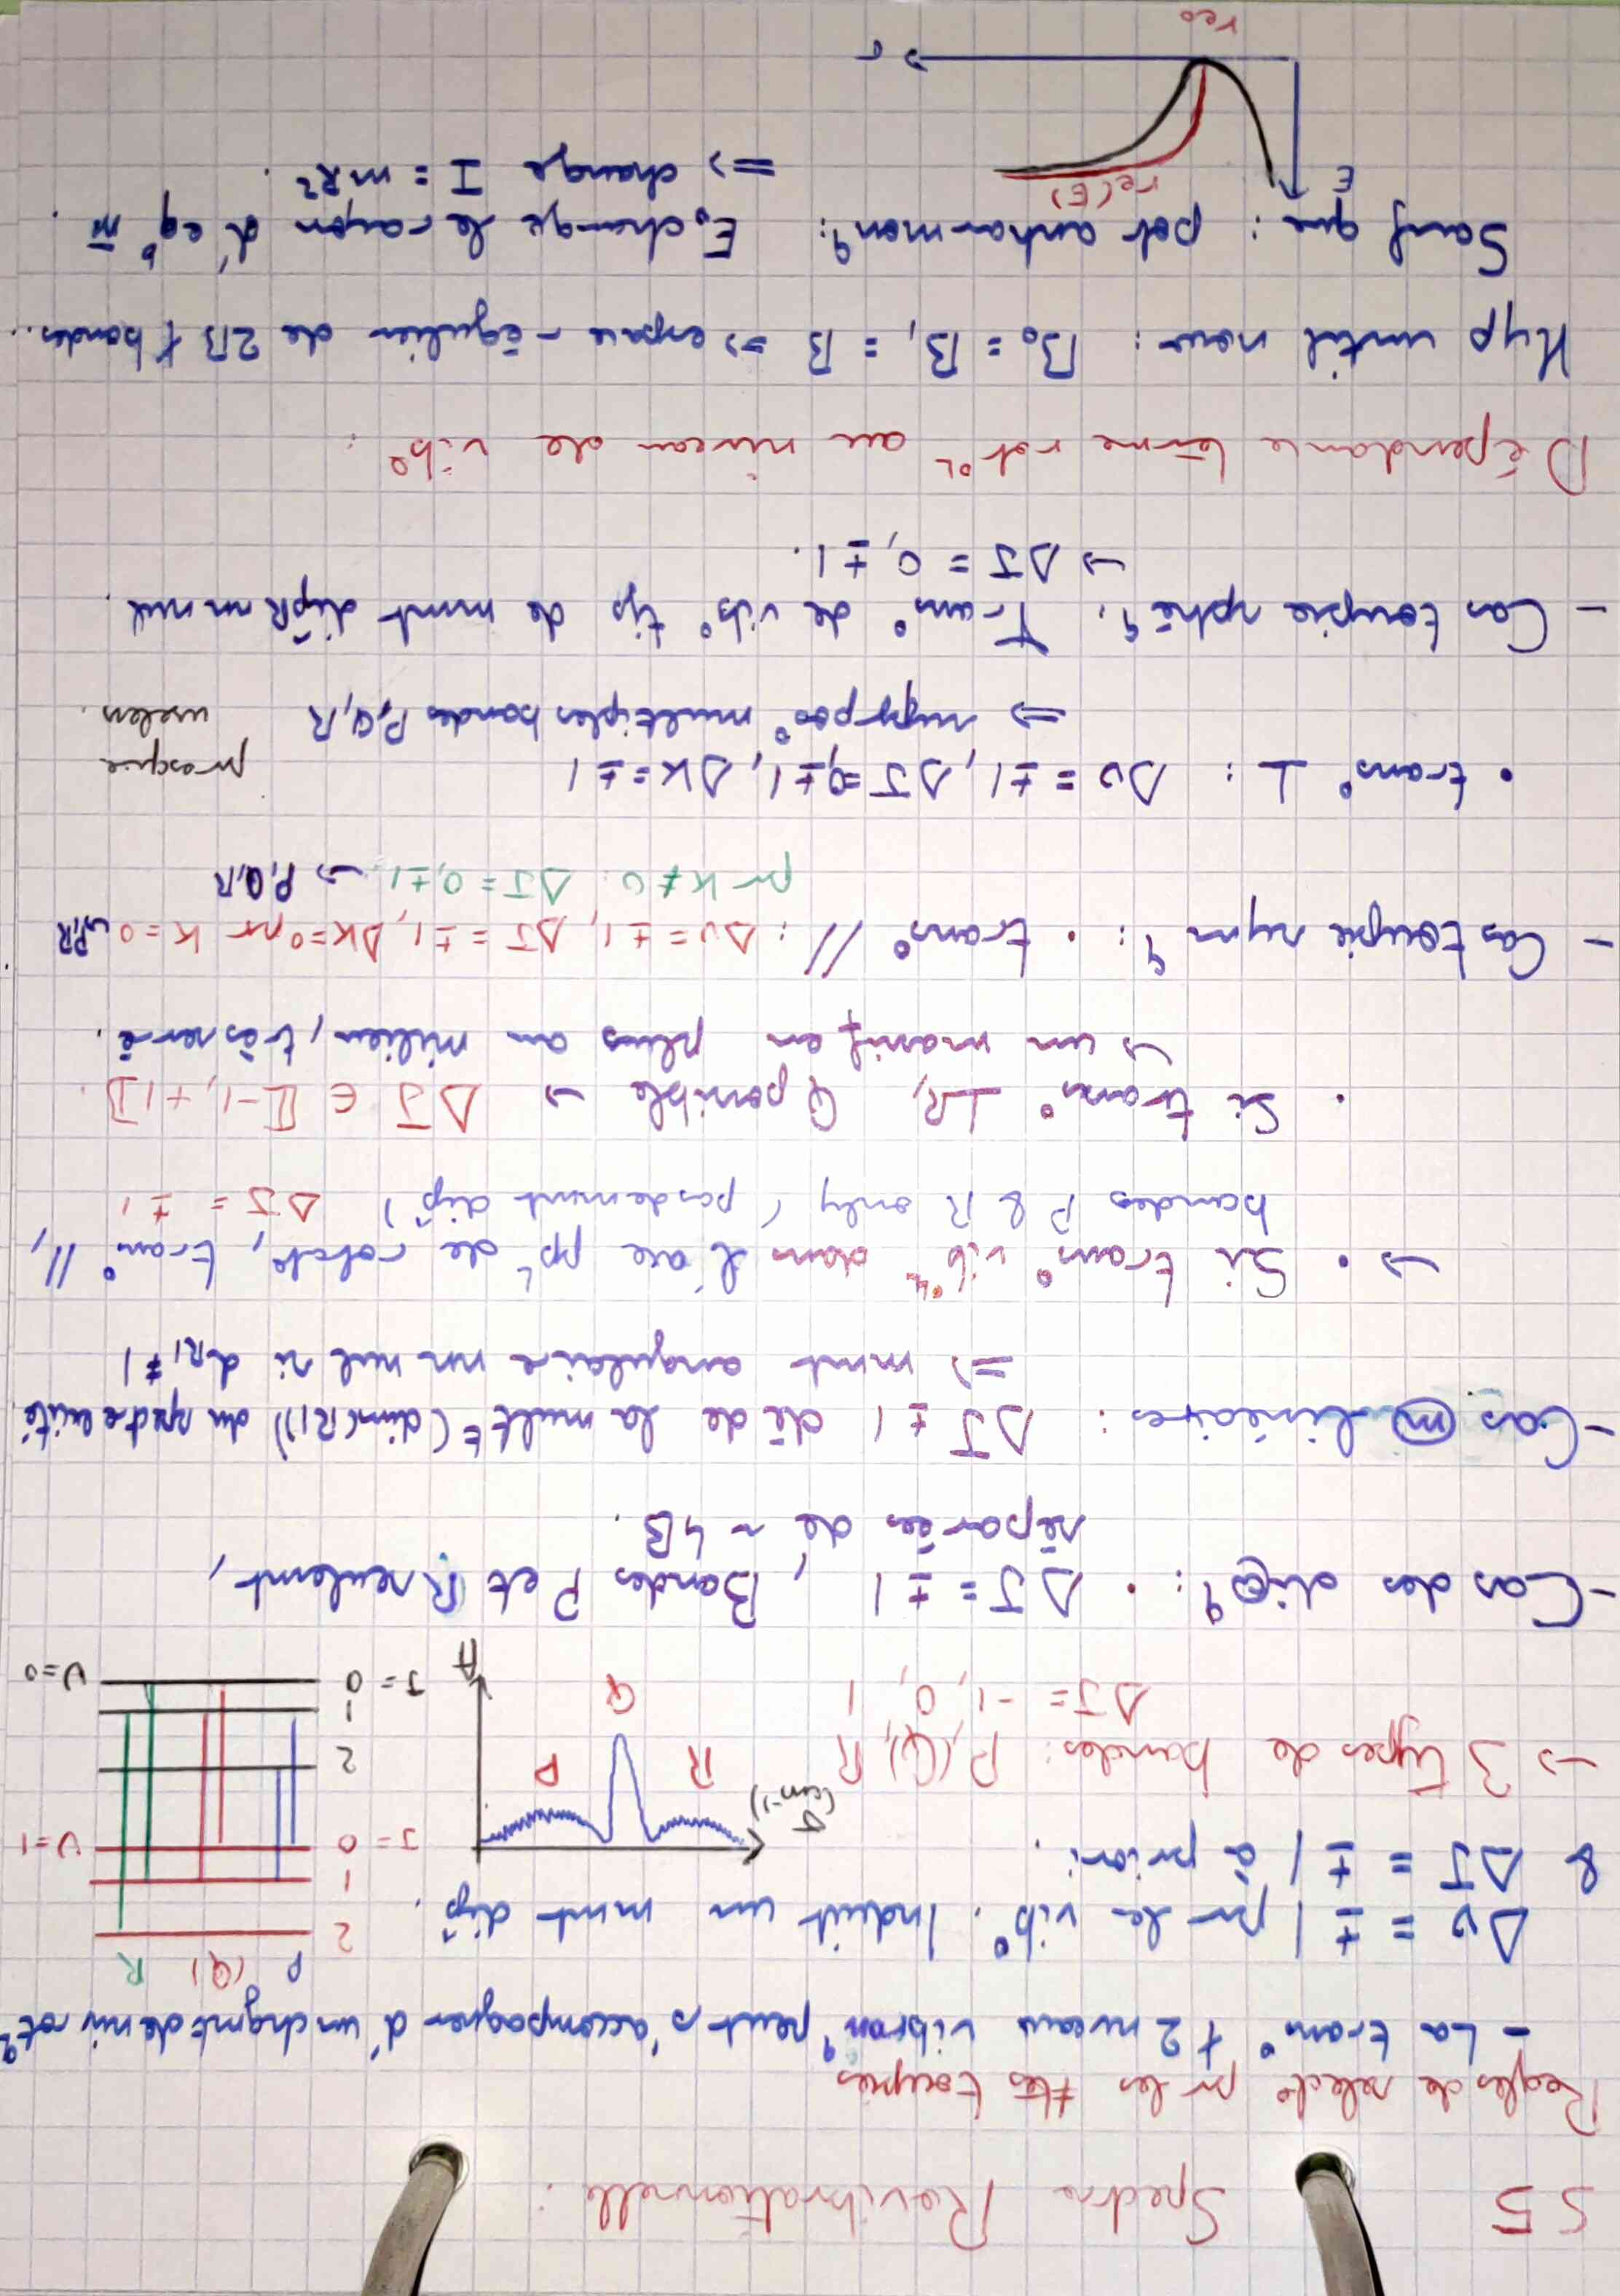 S5 Spectro Rovibrationnelle :
Règles de select° pr les ≠tes toupies
- La trans° ≠ 2 niveaux vibron^q peut s'accompagner d'un chgmt de niv rot^q
Δv = ±1 pr la vib°. Induit un mmt dip.
& ΔJ = ±1 à priori.
P (Q) R
2
1
J = 0 v=1
2
1
J = 0 v=0
→ 3 types de bandes: P, (Q), R
ΔJ = -1, 0, 1
σ (cm⁻¹)
R P
Q
A
- Cas des di@^q : • ΔJ = ±1, Bandes P et R seulemt,
séparées de ~ 4B.
- Cas (m) linéaires : ΔJ ±1 dû de la mult^t (dim(RI)) du spectre excité
=> mmt angulaire nn nul si d_RI ≠ 1
→ • Si trans° vib^le dans l'axe pp^L de rotat°, tran° //,
bandes P & R only (pas de mmt dip) ΔJ = ±1
• Si trans° ⊥R, Q possible → ΔJ ∈ [[-1, +1]]
↳ un massif en plus au milieu, très serré.
- Cas toupie sym^q : • trans° // : Δv = ±1, ΔJ = ±1, ΔK=0 pr K=0 ↳ P,R
pr K ≠ 0 ΔJ = 0,±1, → P,Q,R
• trans° ⊥ : Δv = ±1, ΔJ=0,±1, ΔK=±1 presque
=> superpos° multiples bandes P,Q,R useless.
- Cas toupie sphé^q : Trans° de vib° tjs de mmt dipR nn nul.
→ ΔJ = 0, ±1.
Dépendance terme rot^oL au niveau de vib° :
Hyp until now : B₀ = B₁ = B => espace régulier de 2B ≠ bandes.
Sauf que : pot anharmon^q : E₀ change le rayon d'éq^b m̄.
=> change I = mR².
E
re(E)
r
re0